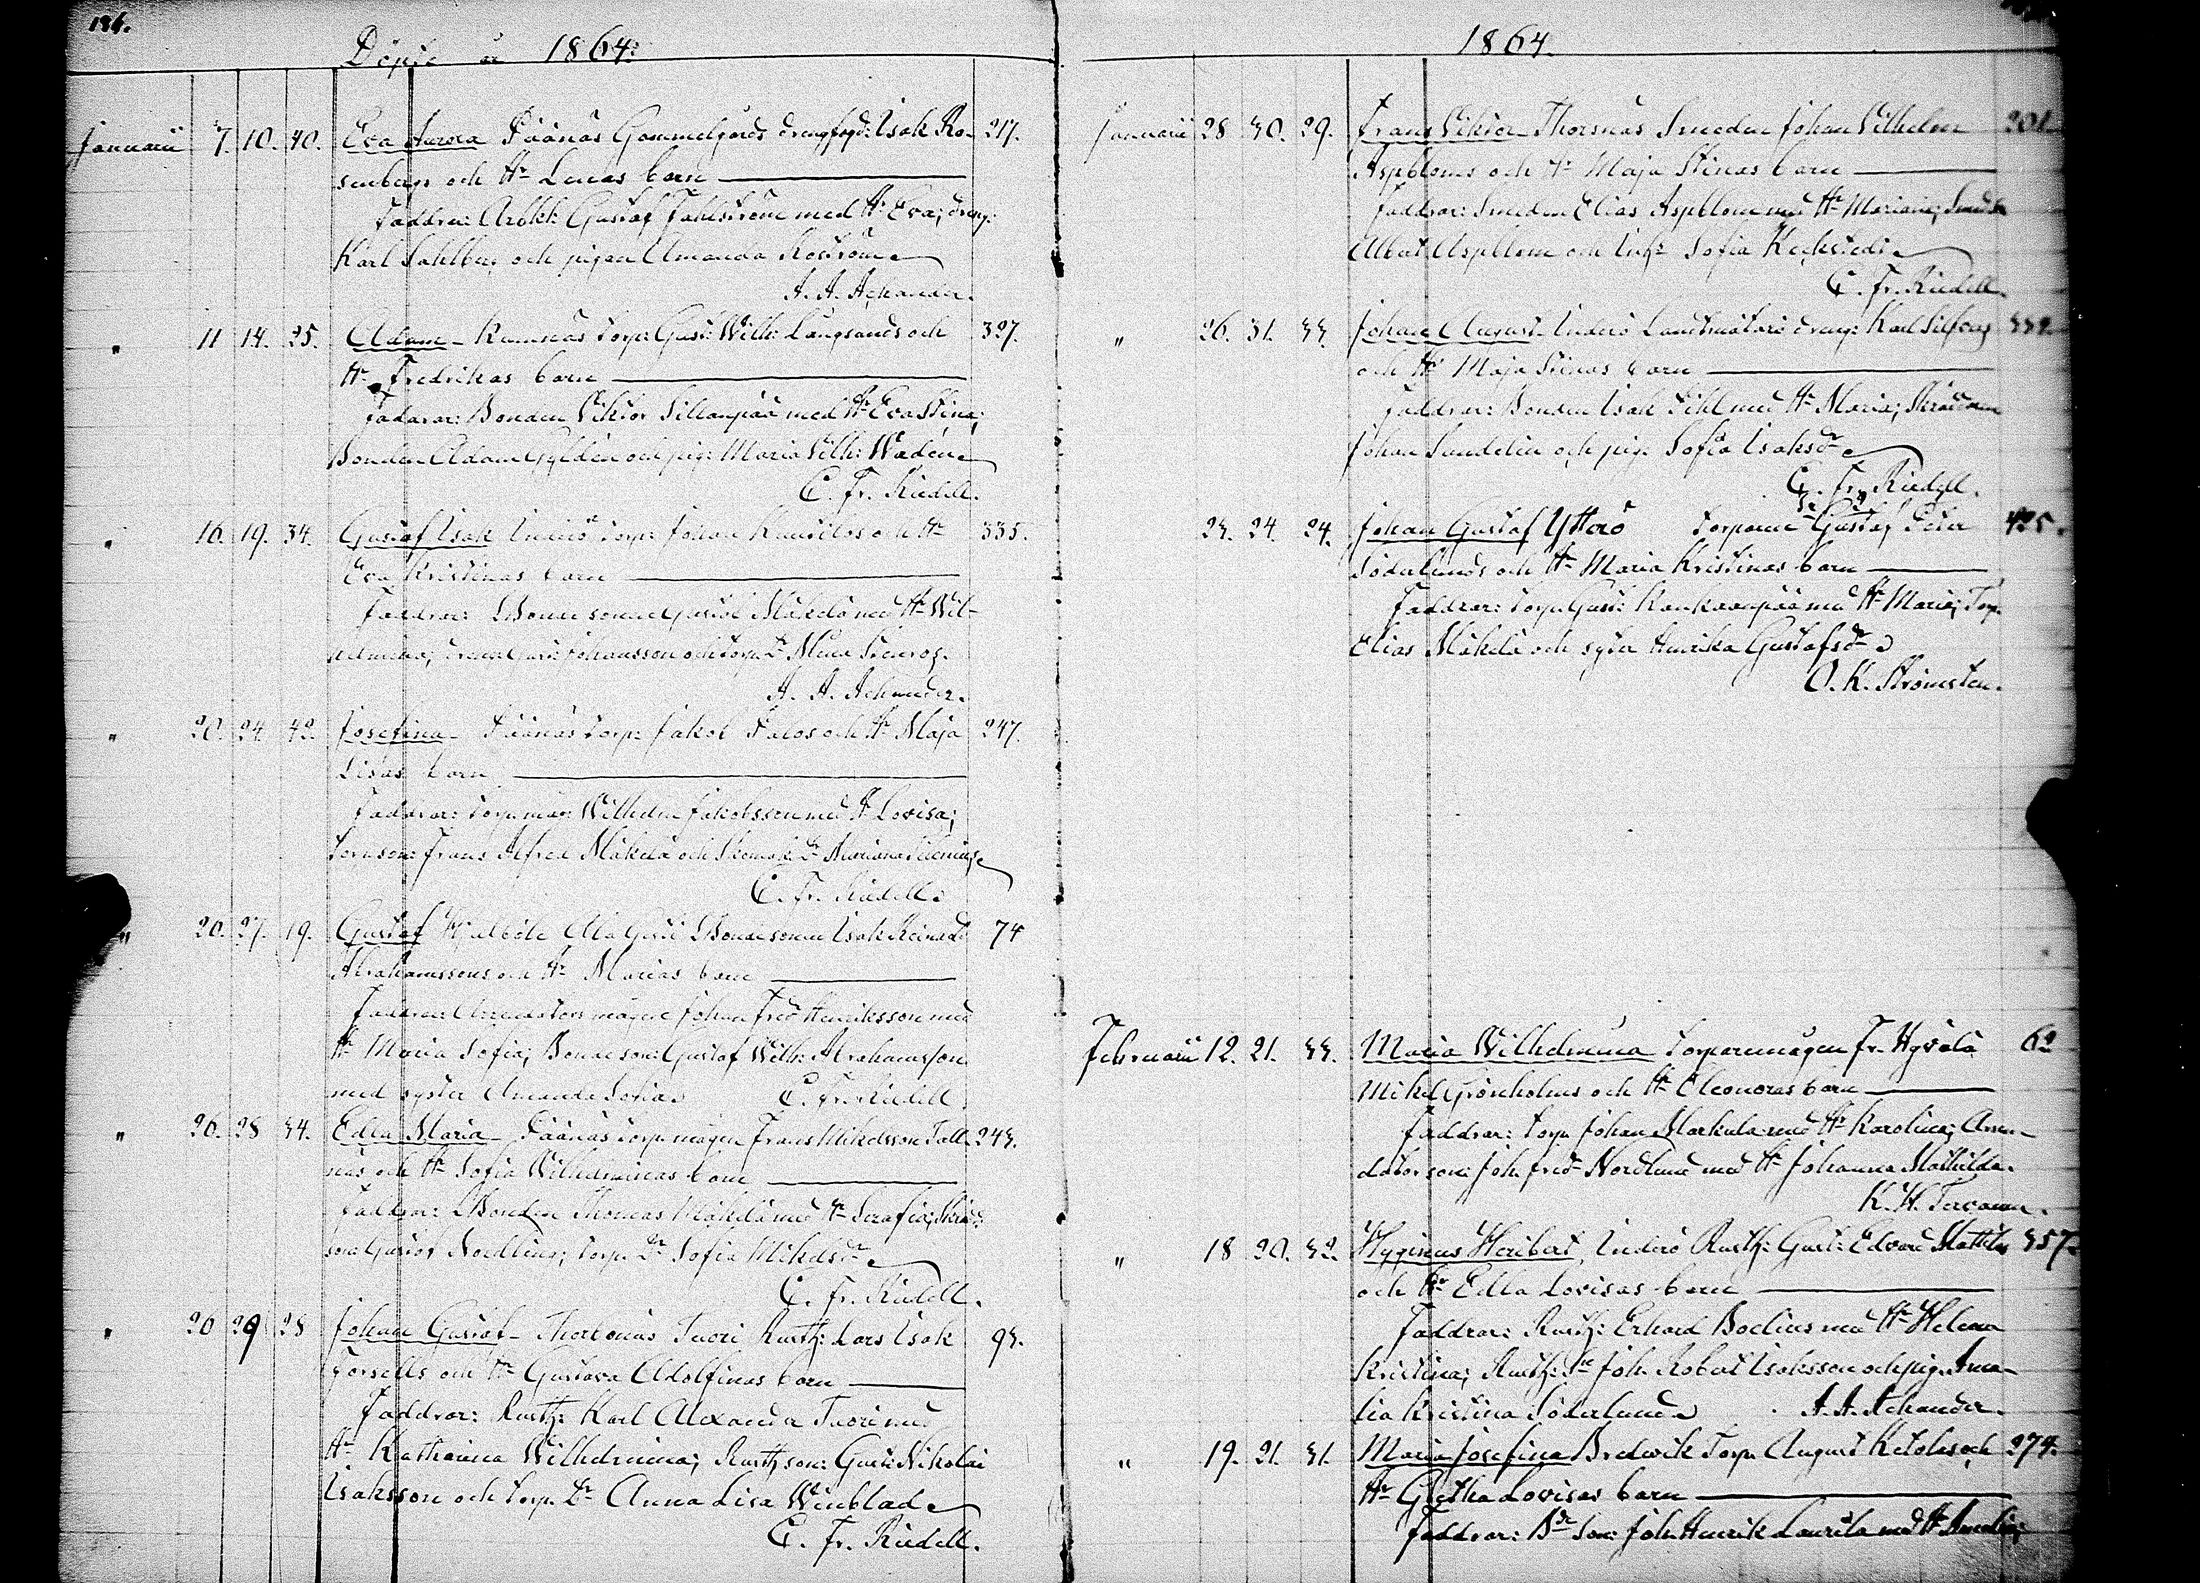 186.
Döpte år 1864.
Januarii 7. 10. 40. Eva Aurora Päänäs Gammelgårds drengfogd: Isak Ro- 217.
senbergs och Hr Lenas barn
Faddrar: Arbkl: Gustaf Fahlström med Hr Eva; dreng:
Karl Sahlberg och pigan Amanda Roström
A. A. Achander.
" 11 14. 25. Adam Rumnäs torp: Gust: Wilh: Långsunds och 327.
Hr Fredrikas barn
Faddrar: Bonden Viktor Sillanpää med Hr Eva Stina;
Bonden Adam Gyldén och pig: Maria Vilh: Wadén
C. Fr. Riedell.
" 16. 19. 34. Gustaf Isak torp: Johan och Hr 335.
Eva Kristinas barn
Faddrar: Bondesonen Gustaf Mäkelä med Hr Wil-
helmina; dreng Gust: Johansson och torp. Dr Mina
A. A. Achander.
" 20. 24. 42. Josefina Päänäs torp: Jakob och Hr Maja 247.
Lisas barn
Faddrar: torp. måg: Wilhelm Jakobsson med Hr Lovisa;
torp. son: Frans Alfred Mäkelä och Skomak. Dr Mariana
C. Fr. Riedell.
" 20. 27. 19. Gustaf Bondesonen Isak 74
Abrahamssons och Hr Marias barn
Faddrar: mågen Johan Fred: Henriksson med
Hr Maria Sofia; Bondeson: Gustaf Wilh: Abrahamsson
med syster Amanda Sofia C. Fr. Riedell.
" 26. 28 34. Edla Maria Päänäs torp. mågen Frans Mikelsson Tall- 243.
näs och Hr Sofia Wilhelminas barn
Faddrar: Bonden Thomas Mäkelä med Hr Serafia; Skräd:
son Gustaf Nordling; torp. Dr Sofia Mikelsdr
C. Fr. Riedell.
" 20 29 28 Johan Gustaf Thorsnäs Tuori Rusth: Lars Isak 93.
Forsells och Hr Gustava Adolfinas barn
Faddrar: Rusth: Karl Alexander Tuori med
Hr Katharina Wilhelmina; Rusth. son: Gust: Nikolai
Isaksson och torp. Dr Anna Lisa Winblad
C. Fr. Riedell.
1864.
Januarii 28 30. 29. Frans Viktor Thorsnäs Smeden Johan Vilhelm 201.
Aspbloms och Hr Maja Stinas barn
Faddrar: Smeden Elias Aspblom med Hr Mariana;
Albert Aspblom och Sofia
C. Fr. Riedell.
" 26. 31. 33. Johan August Landtmätars dreng: Karl 332
och Hr Maja Stinas barn
Faddrar: Bonden Isak Pihl med Hr Maria; Skräddaren
Johan Sundelin och pig. Sofia Isaksdr
C. Fr. Riedell.
23. 24. 24. Johan Gustaf Ytterö torparen Gustaf Peter 425.
Söderlunds och Hr Maria Kristinas barn
Faddrar: torp. Gust: Kankaanpää med Hr Maria; Torp.
Elias Mäkelä och syster Henrika Gustafsdr
O. K. Strömsten.
Februarii 12. 21. 33. Maria Wilhelmina torparemågen Fr. Hyvelä 62
Mikel Grönholms och Hr Eleonoras barn
Faddrar: torp. Johan Markula med Hr Karolina; Aren-
dators son: Joh. Fred: Nordlund med Hr Johanna Mathilda.
K. H. Tervonen.
" 18 20. 32. Hyginus Heribert Rusth: Gust: Edvard Mattila 357.
och Hr Edla Lovisas barn
Faddrar: Rusth: Erhard Boelius med Hr Helena
Kristina; Rusth: Sn Joh. Robert Isaksson och pig. Ama-
lia Kristina Söderlund A. A. Achander.
" 19. 21. 31. Maria Josefina Bredvik Torp. August Ketolas och 274.
Hr Gretha Lovisas barn
Faddrar: Bde Son: Joh. Henrik Laurila med Hr Amalia;